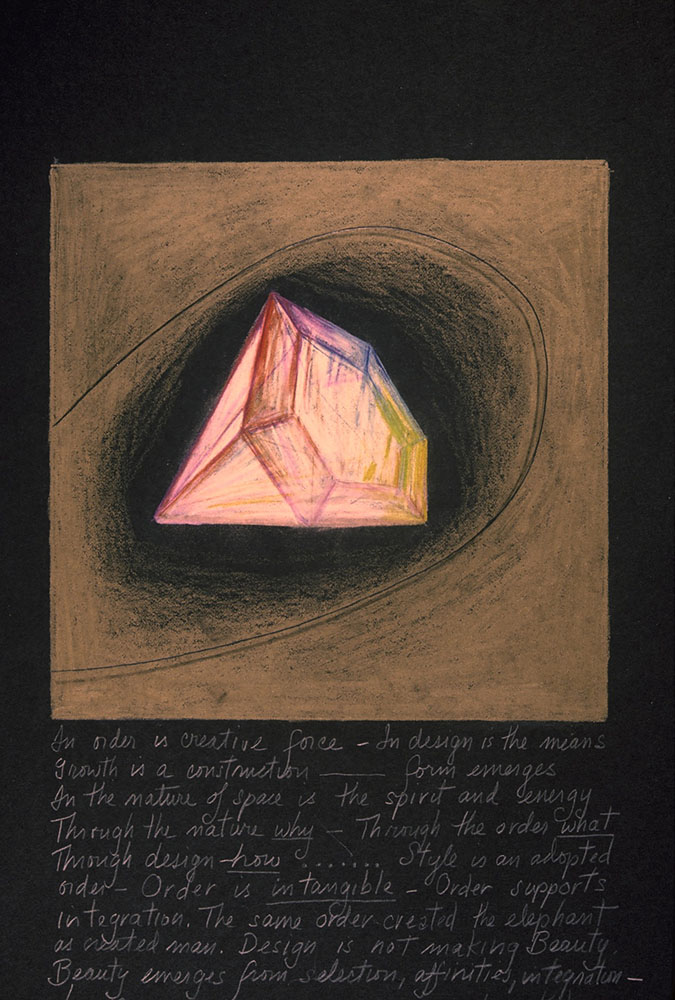 In order is creative force – In design is the means
Growth is a construction —— form emerges
In the nature of space is the spirit and energy
Through the nature why – Through the order what
Through design – how ....... Style is an adopted
order – Order is intangible – Order supports
integration. The same order created the elephant
as created man. Design is not making Beauty
Beauty emerges from selection, affinities, integration –